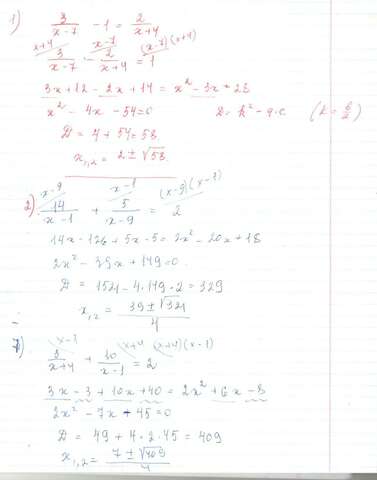 1) 3/(x-7) - 1 = 2/(x+4)
x+4 x-7 (x-7)(x+4)
3/(x-7) - 2/(x+4) = 1
3x+12 - 2x+14 = x² - 3x + 28
x² - 4x - 54=0 D = k² - a·c (k = b/2)
D = 4 + 54 = 58
x₁,₂ = 2 ± √58
2) x-9 x-1 (x-9)(x-1)
14/(x-1) + 5/(x-9) = 2
14x - 126 + 5x - 5 = 2x² - 20x + 18
2x² - 39x + 149 = 0
D = 1521 - 4·149·2 = 329
x₁,₂ = (39 ± √329)/4
7) x-1 x+4 (x+4)(x-1)
3/(x+4) + 10/(x-1) = 2
3x - 3 + 10x + 40 = 2x² + 6x - 8
2x² - 7x + 45 = 0
D = 49 + 4·2·45 = 409
x₁,₂ = (7 ± √409)/4